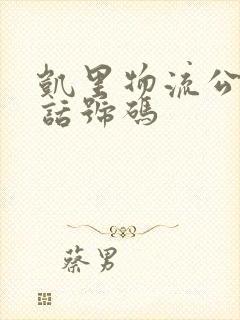 凱里物流公
話號碼
蔡男